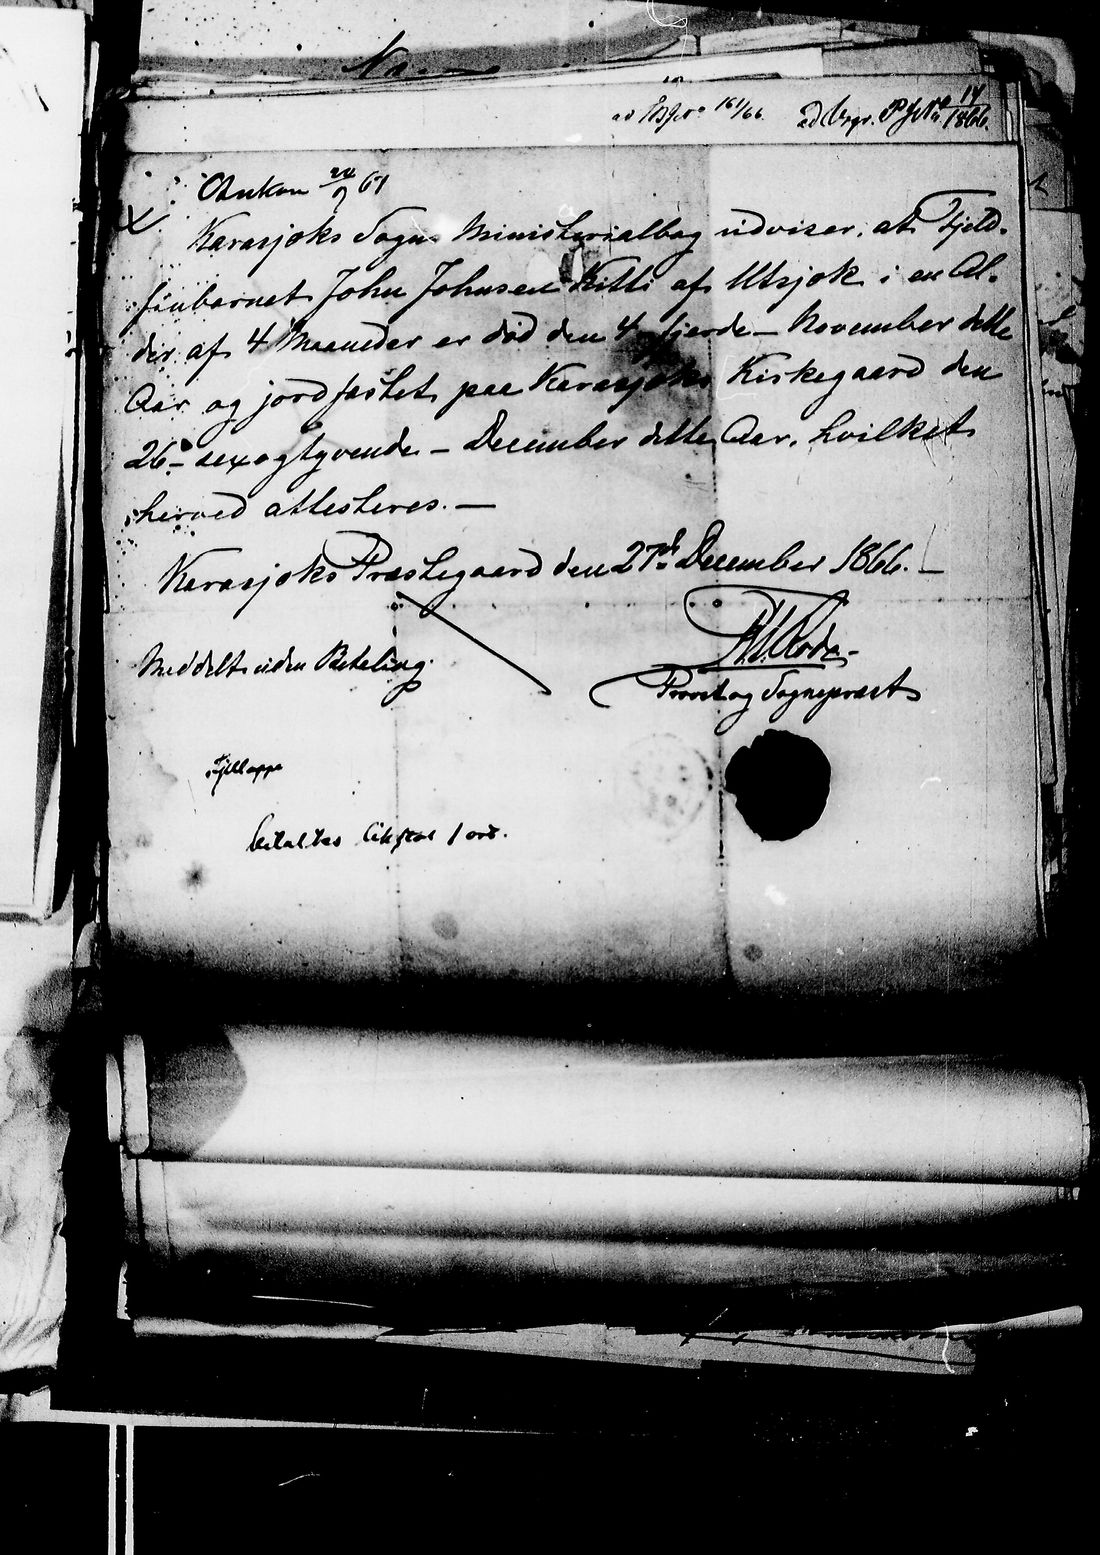 161/66. ad 14/1866.
Ankom 24/9 67
Karasjoks Sogns Ministerialbog udviser, at Fjeld-
finbarnet John Johnsen Kitti af Utsjok i en Al-
der af 4 Maaneder er død den 4 fjerde – November dette
Aar og jordfæstet paa Karasjoks Kirkegaard den
26 – sexogtyvende – December dette Aar, hvilket
herved attesteres. –
Karasjoks Præstegaard den 27de December 1866. –
Meddelt uden Betaling.
Provst og Sognepræst
Fjellappe
betaltes 1 ort.